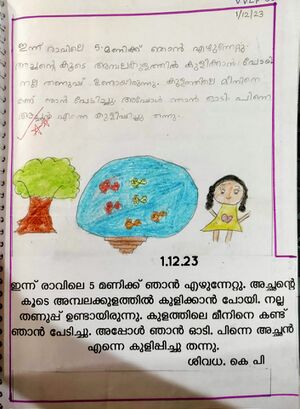 1/12/23
ഇന്ന് രാവിലെ 5 മണിക്ക് ഞാൻ എഴുന്നേറ്റു.
അച്ഛന്റെ കൂടെ അമ്പലക്കുളത്തിൽ കുളിക്കാൻ പോയി.
നല്ല തണുപ്പ് ഉണ്ടായിരുന്നു. കുളത്തിലെ മീനിനെ
കണ്ട് ഞാൻ പേടിച്ചു. അപ്പോൾ ഞാൻ ഓടി. പിന്നെ
അച്ഛൻ എന്നെ കുളിപ്പിച്ചു തന്നു.
1.12.23
ഇന്ന് രാവിലെ 5 മണിക്ക് ഞാൻ എഴുന്നേറ്റു. അച്ഛന്റെ
കൂടെ അമ്പലക്കുളത്തിൽ കുളിക്കാൻ പോയി. നല്ല
തണുപ്പ് ഉണ്ടായിരുന്നു. കുളത്തിലെ മീനിനെ കണ്ട്
ഞാൻ പേടിച്ചു. അപ്പോൾ ഞാൻ ഓടി. പിന്നെ അച്ഛൻ
എന്നെ കുളിപ്പിച്ചു തന്നു.
ശിവധ. കെ പി